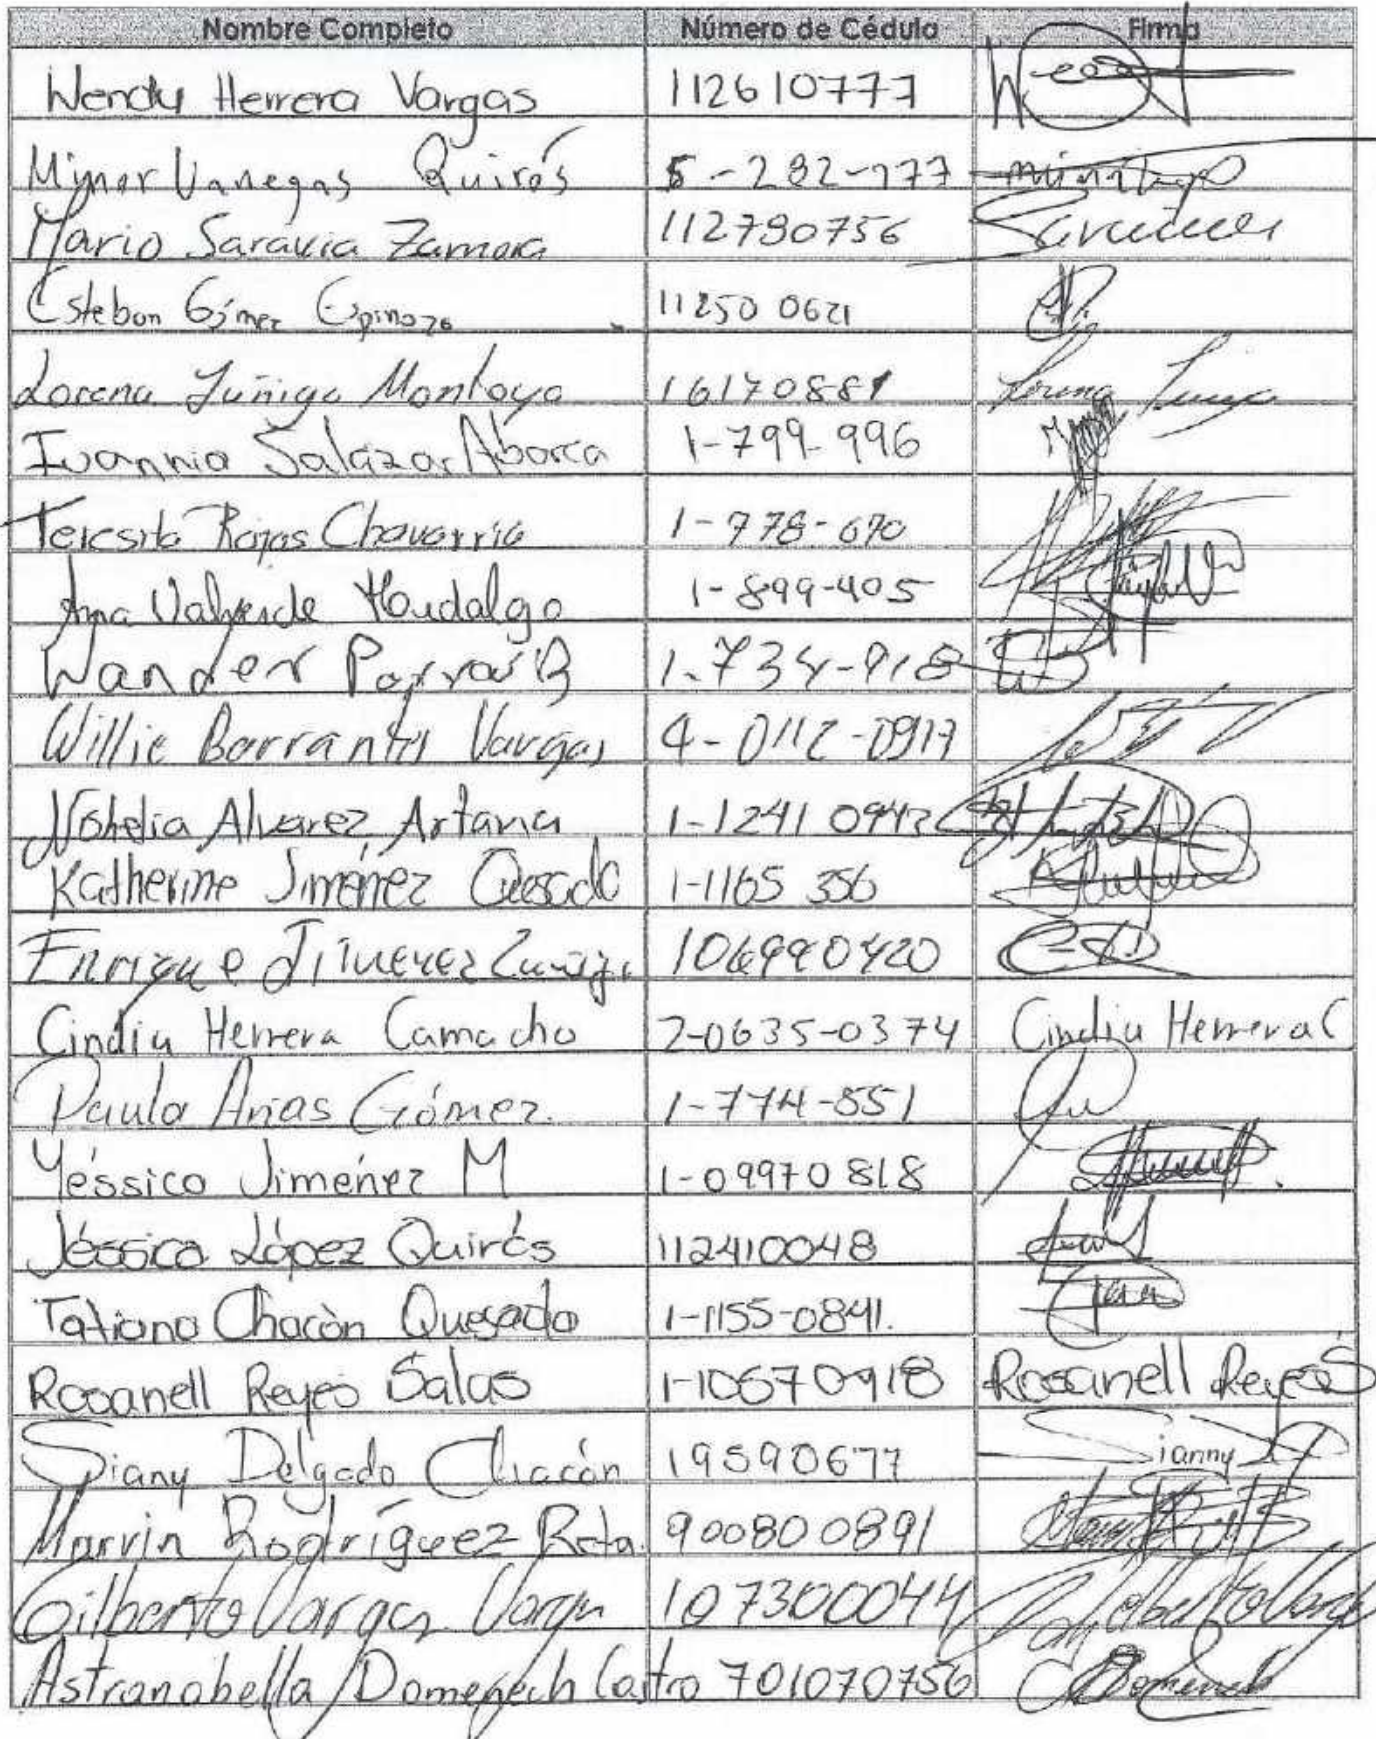 Nombre Completo Número de Cédula Firma
Wendy Herrera Vargas 112610777
Minor Vanegas Quirós 5-282-777
Mario Saravia Zamora 112780756
Esteban Gómez Espinoza 11250 0621
Lorena Zúñiga Montoya 16170881 Lorena Zuñiga
Ivannia Salazar Abarca 1-799-996
Teresita Rojas Chavarría 1-778-670
Ana Valverde Haudalgo 1-899-405
Wander Porras B 1-734-918
Willie Barrantes Vargas 4-0112-0917
Nohelia Alvarez Artavia 1-1241 0942
Katherine Jiménez Quesada 1-1165 356
Enrique Jimenez Zuñiga 106990420
Cindia Herrera Camacho 2-0635-0374 Cindia Herrera C
Paula Arias Gómez. 1-774-551
Yéssica Jiménez M 1-09970818
Jéssica López Quirós 112410048
Tatiana Chacòn Quesada 1-1155-0841.
Rosanell Reyes Salas 1-10670918 Rosanell Reyes S
Siany Delgado Chacón 19590677 Sianny
Marvin Rodríguez Rota. 900800891
Gilberto Vargas Vargas 107300044 Gilberto Vargas
Astranabella Domenech Castro 701070756 Domenech